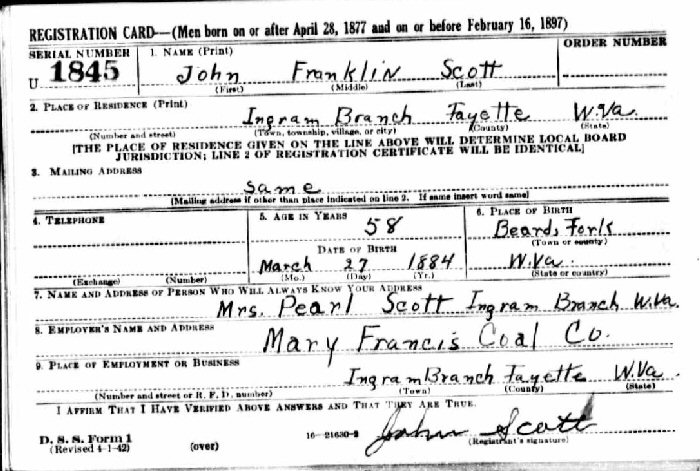 REGISTRATION CARD—(Men born on or after April 28, 1877 and on or before February 16, 1897)
SERIAL NUMBER 1. NAME (Print) ORDER NUMBER
U 1845 John Franklin Scott
(First) (Middle) (Last)
2. PLACE OF RESIDENCE (Print)
Ingram Branch Fayette W.Va.
(Number and street) (Town, township, village, or city) (County) (State)
[THE PLACE OF RESIDENCE GIVEN ON THE LINE ABOVE WILL DETERMINE LOCAL BOARD
JURISDICTION; LINE 2 OF REGISTRATION CERTIFICATE WILL BE IDENTICAL]
3. MAILING ADDRESS
Same
(Mailing address if other than place indicated on line 2. If same insert word same)
4. TELEPHONE 5. AGE IN YEARS 6. PLACE OF BIRTH
58 Beards Fork
(Town or county)
DATE OF BIRTH
March 27 1884 W.Va.
(Exchange) (Number) (Mo.) (Day) (Yr.) (State or country)
7. NAME AND ADDRESS OF PERSON WHO WILL ALWAYS KNOW YOUR ADDRESS
Mrs. Pearl Scott Ingram Branch W.Va.
8. EMPLOYER'S NAME AND ADDRESS
Mary Francis Coal Co.
9. PLACE OF EMPLOYMENT OR BUSINESS
Ingram Branch Fayette W.Va
(Number and street or R. F. D. number) (Town) (County) (State)
I AFFIRM THAT I HAVE VERIFIED ABOVE ANSWERS AND THAT THEY ARE TRUE.
John Scott
D. S. S. Form 1 16—21630-2 (Registrant's signature)
(Revised 4-1-42) (over)